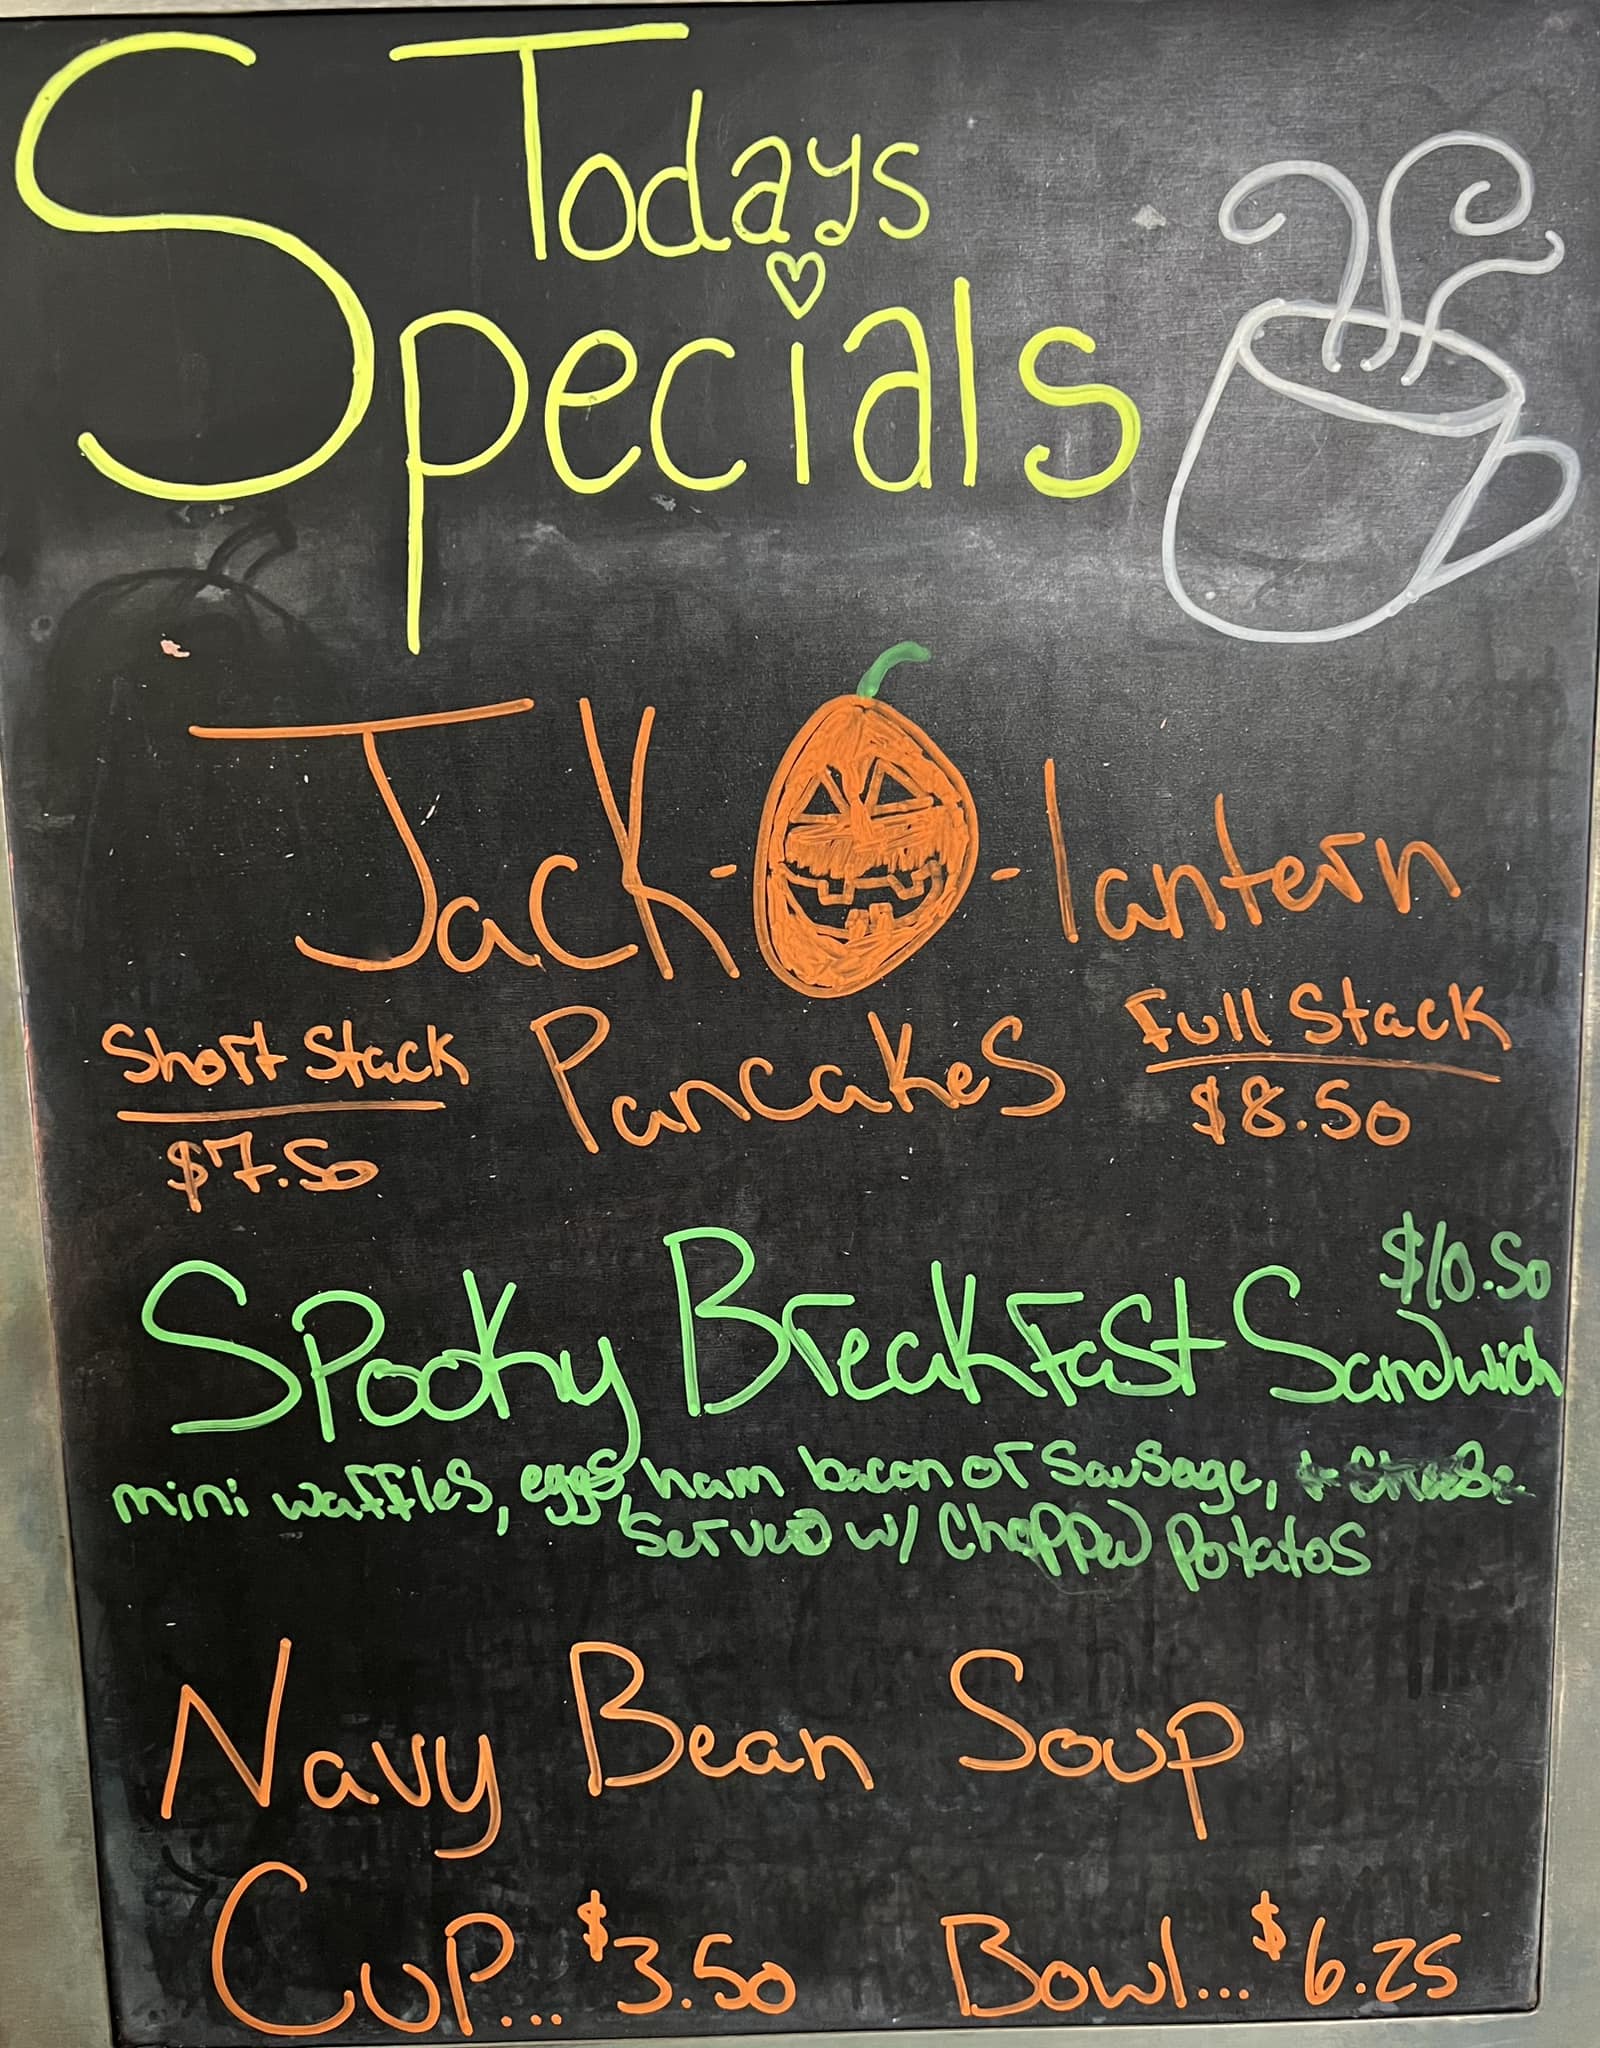 Todays
Specials
Jack-O-lantern
Pancakes
Short Stack
$7.50
Full Stack
$8.50
Spooky Breakfast Sandwich
$10.50
mini waffles, eggs, ham bacon or sausage, + cheese
served w/ Chopped Potatos
Navy Bean Soup
Cup... $3.50 Bowl... $6.25